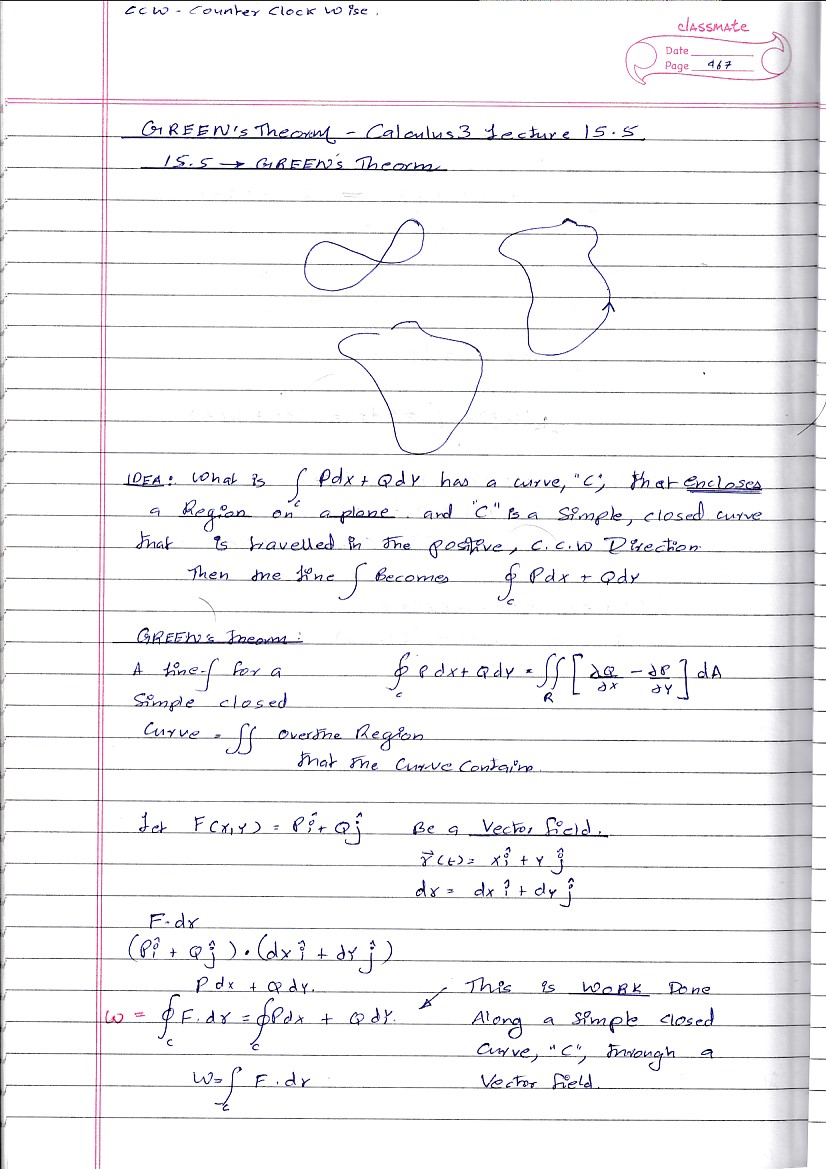 CCW - Counter Clock Wise.
classmate
Date
Page 467
GREEN's Theorm - Calculus 3 Lecture 15.5
15.5 → GREEN's Theorm
IDEA: What is ∫_c Pdx + Qdy has a curve, "C", that encloses
a Region on a plane. and "C" is a simple, closed curve
that is travelled in the postive, C.C.W Direction.
Then the line ∫ Becomes ∮_c Pdx + Qdy
GREEN's Theorm:
A line-∫ for a ∮_c Pdx + Qdy = ∬_R [∂Q/∂x - ∂P/∂y] dA
Simple closed
Curve = ∬ over the Region
that the Curve Contains.
Let F(x,y) = Pî + Qĵ Be a Vector field.
r⃗(t) = xî + yĵ
dr = dxî + dyĵ
F·dr
(Pî + Qĵ)·(dxî + dyĵ)
Pdx + Qdy. This is WORK Done
W = ∮_c F·dr = ∮_c Pdx + Qdy. Along a simple closed
Curve, "C", through a
W = ∫_-c F·dr Vector field.